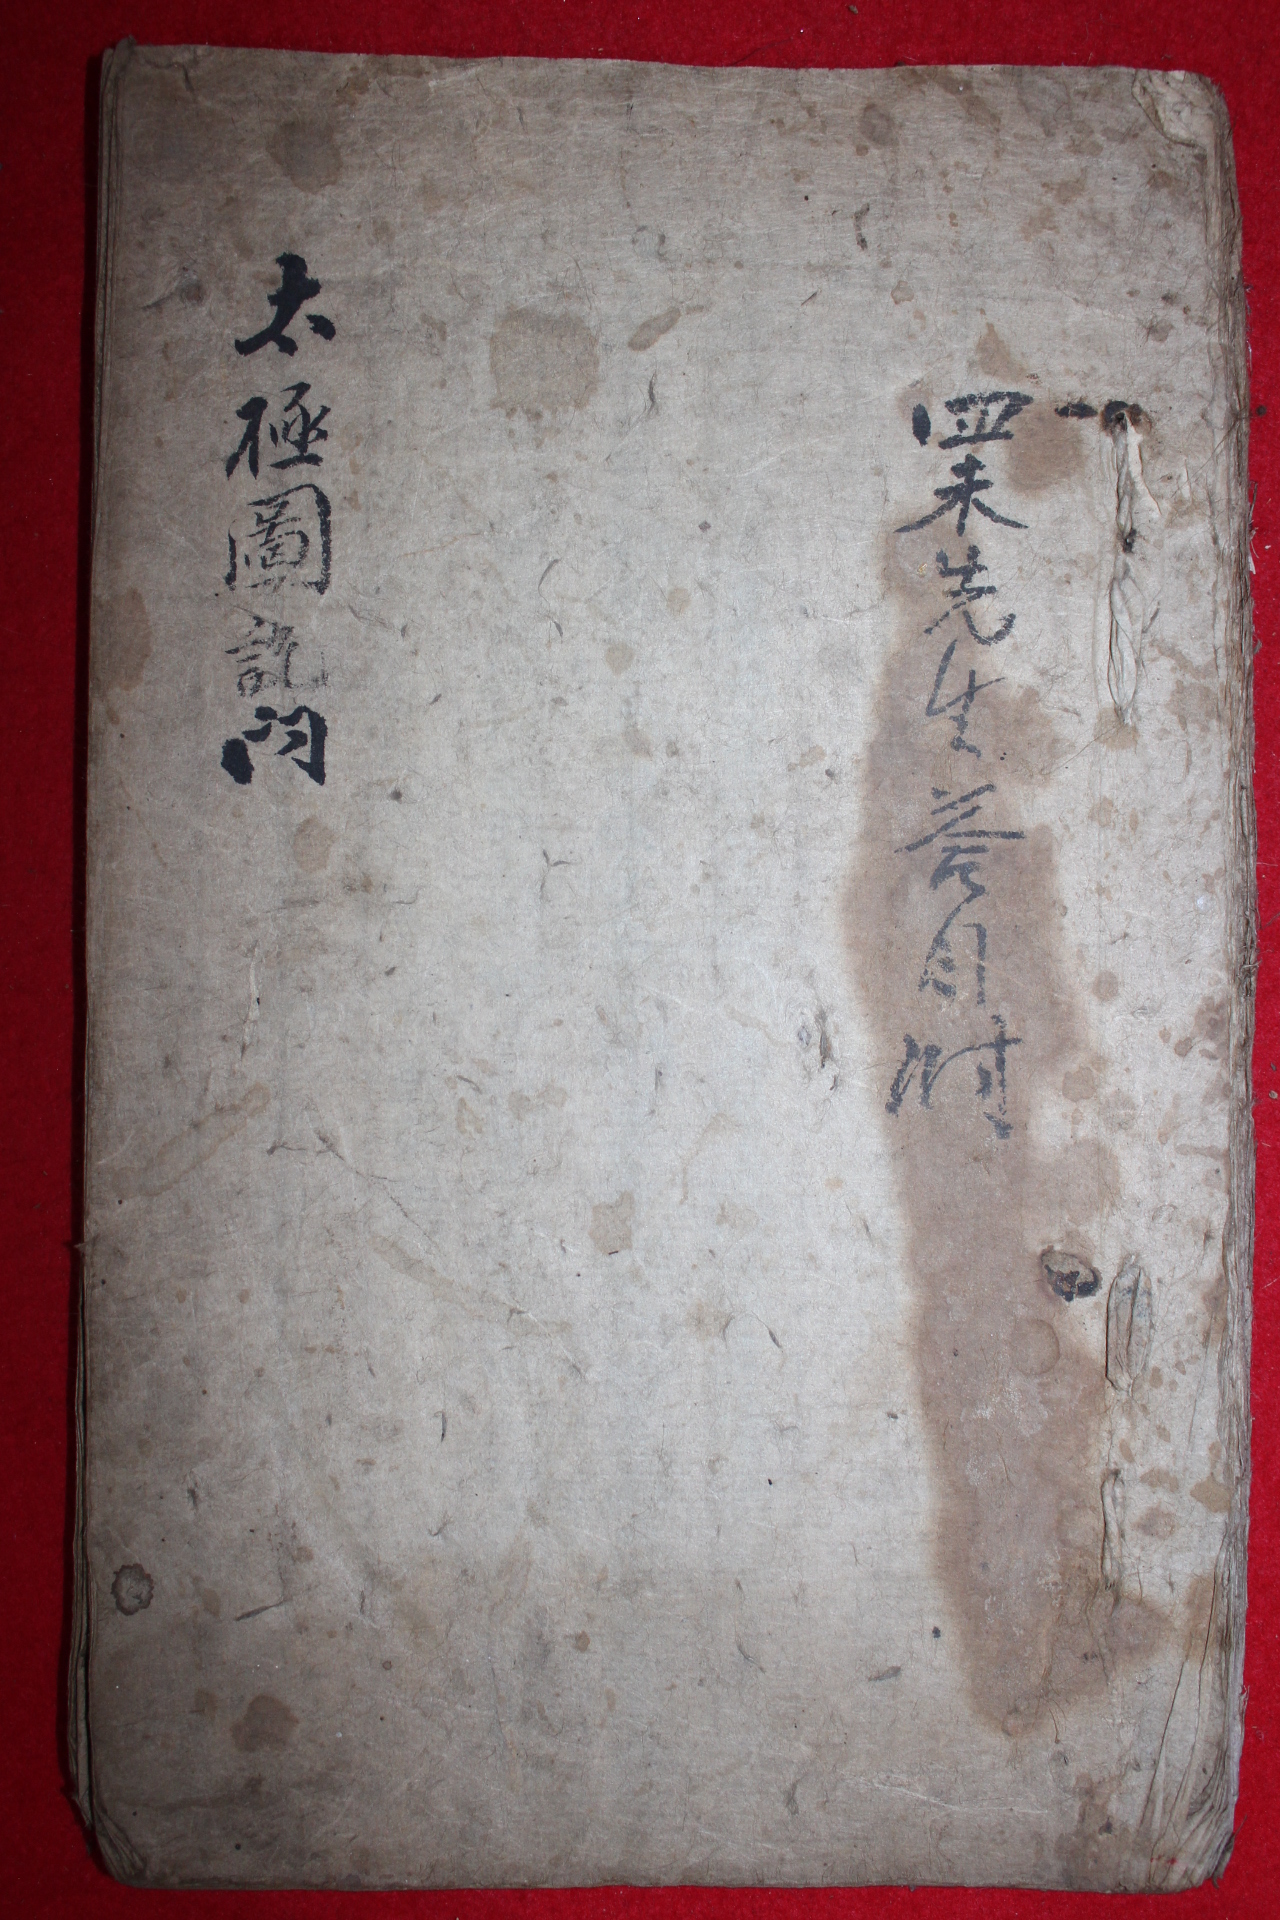 一四未先生答問附
太極圖說問